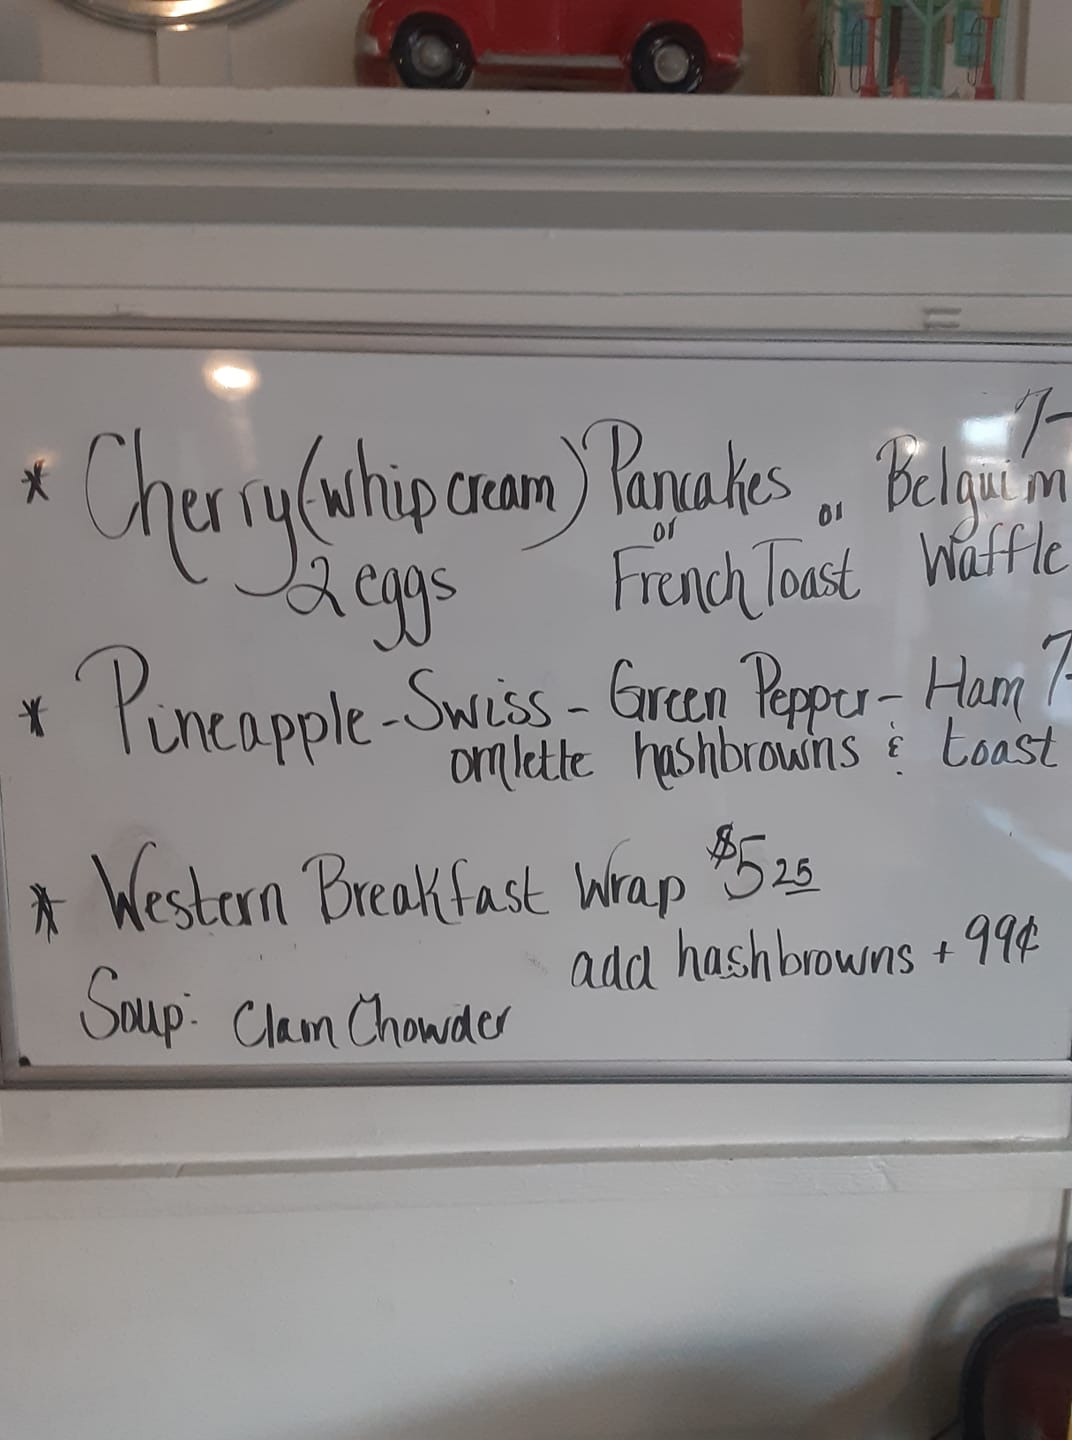 7-
* Cherry (whip cream) Pancakes or Belguim
or
2 eggs French Toast Waffle
* Pineapple - Swiss - Green Pepper - Ham 7-
omlette hashbrowns & toast
* Western Breakfast Wrap $5 25
add hashbrowns + 99¢
Soup: Clam Chowder